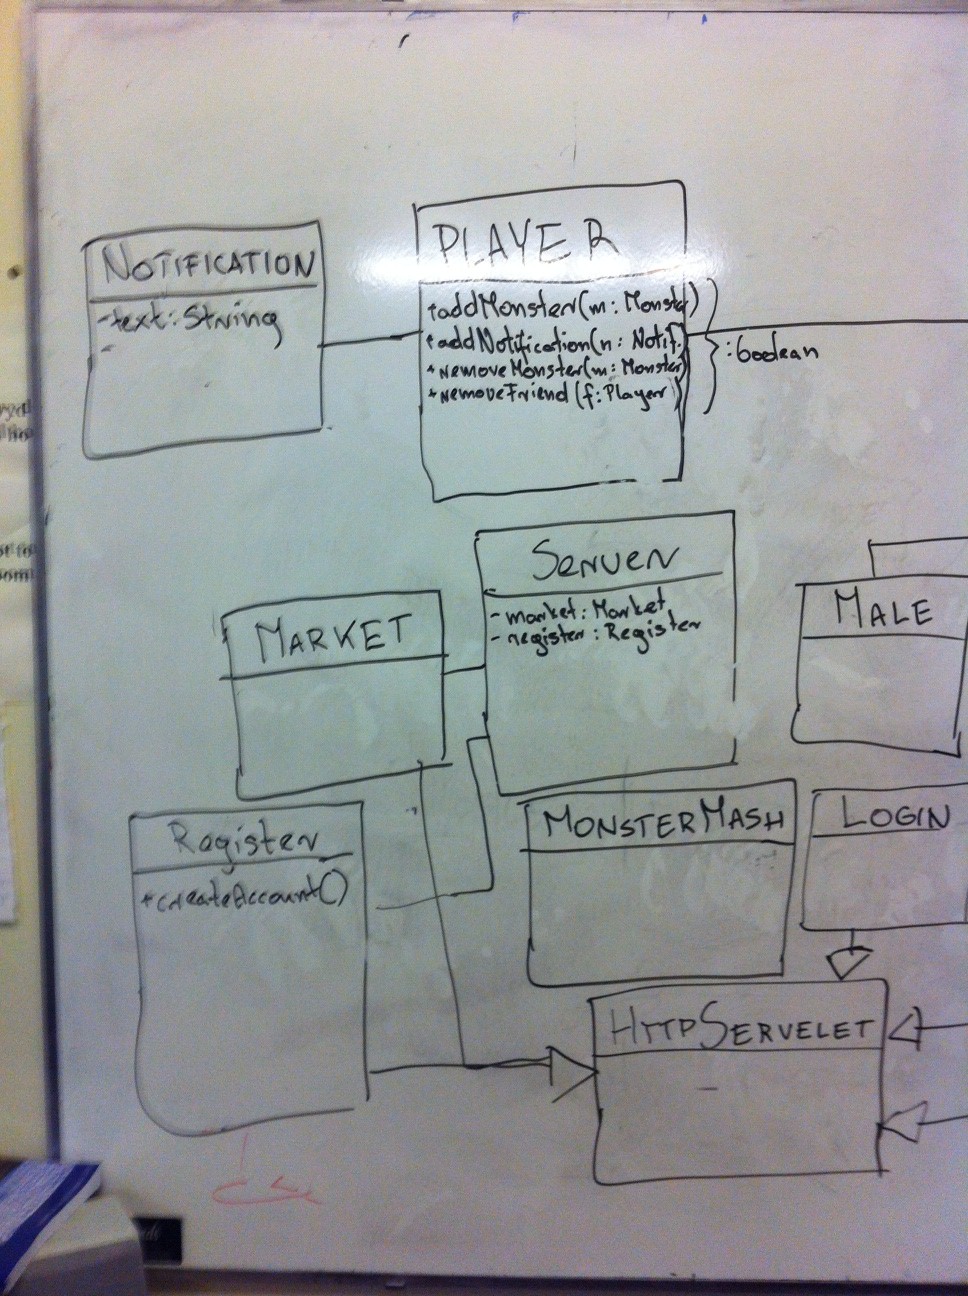 NOTIFICATION
-text: String
-
PLAYER
+addMonster(m: Monster)
+addNotification(n: Notif.
+removeMonster(m: Monster)
+removeFriend(f: Player)
:boolean
Server
- market: Market
- register: Register
MARKET
MALE
Register
+createAccount()
MONSTERMASH
LOGIN
HTTPSERVELET
-